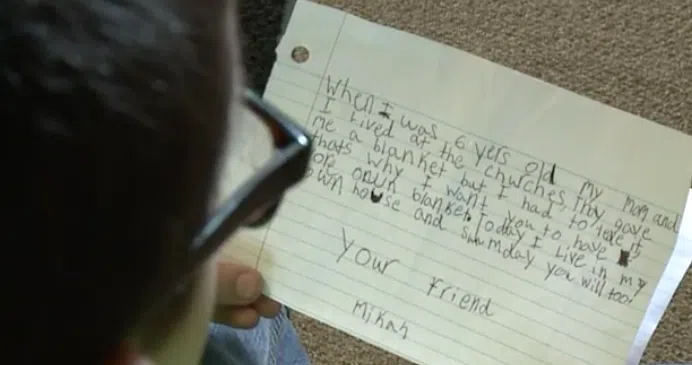 When I was 6 yers old my mom and
I lived at the churches. They gave
me a blanket but I had to leve it
thats why I want you to have
blanket. Today I live in my
own house and sumday you will too!
Your friend
Mikah